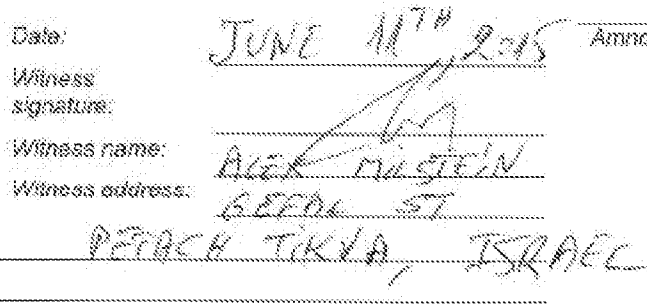 Date: JUNE 11TH, 2015 Amno
Witness
signature:
Witness name: ALEX MILSTEIN
Witness address: ST
PETACH TIKVA, ISRAEL